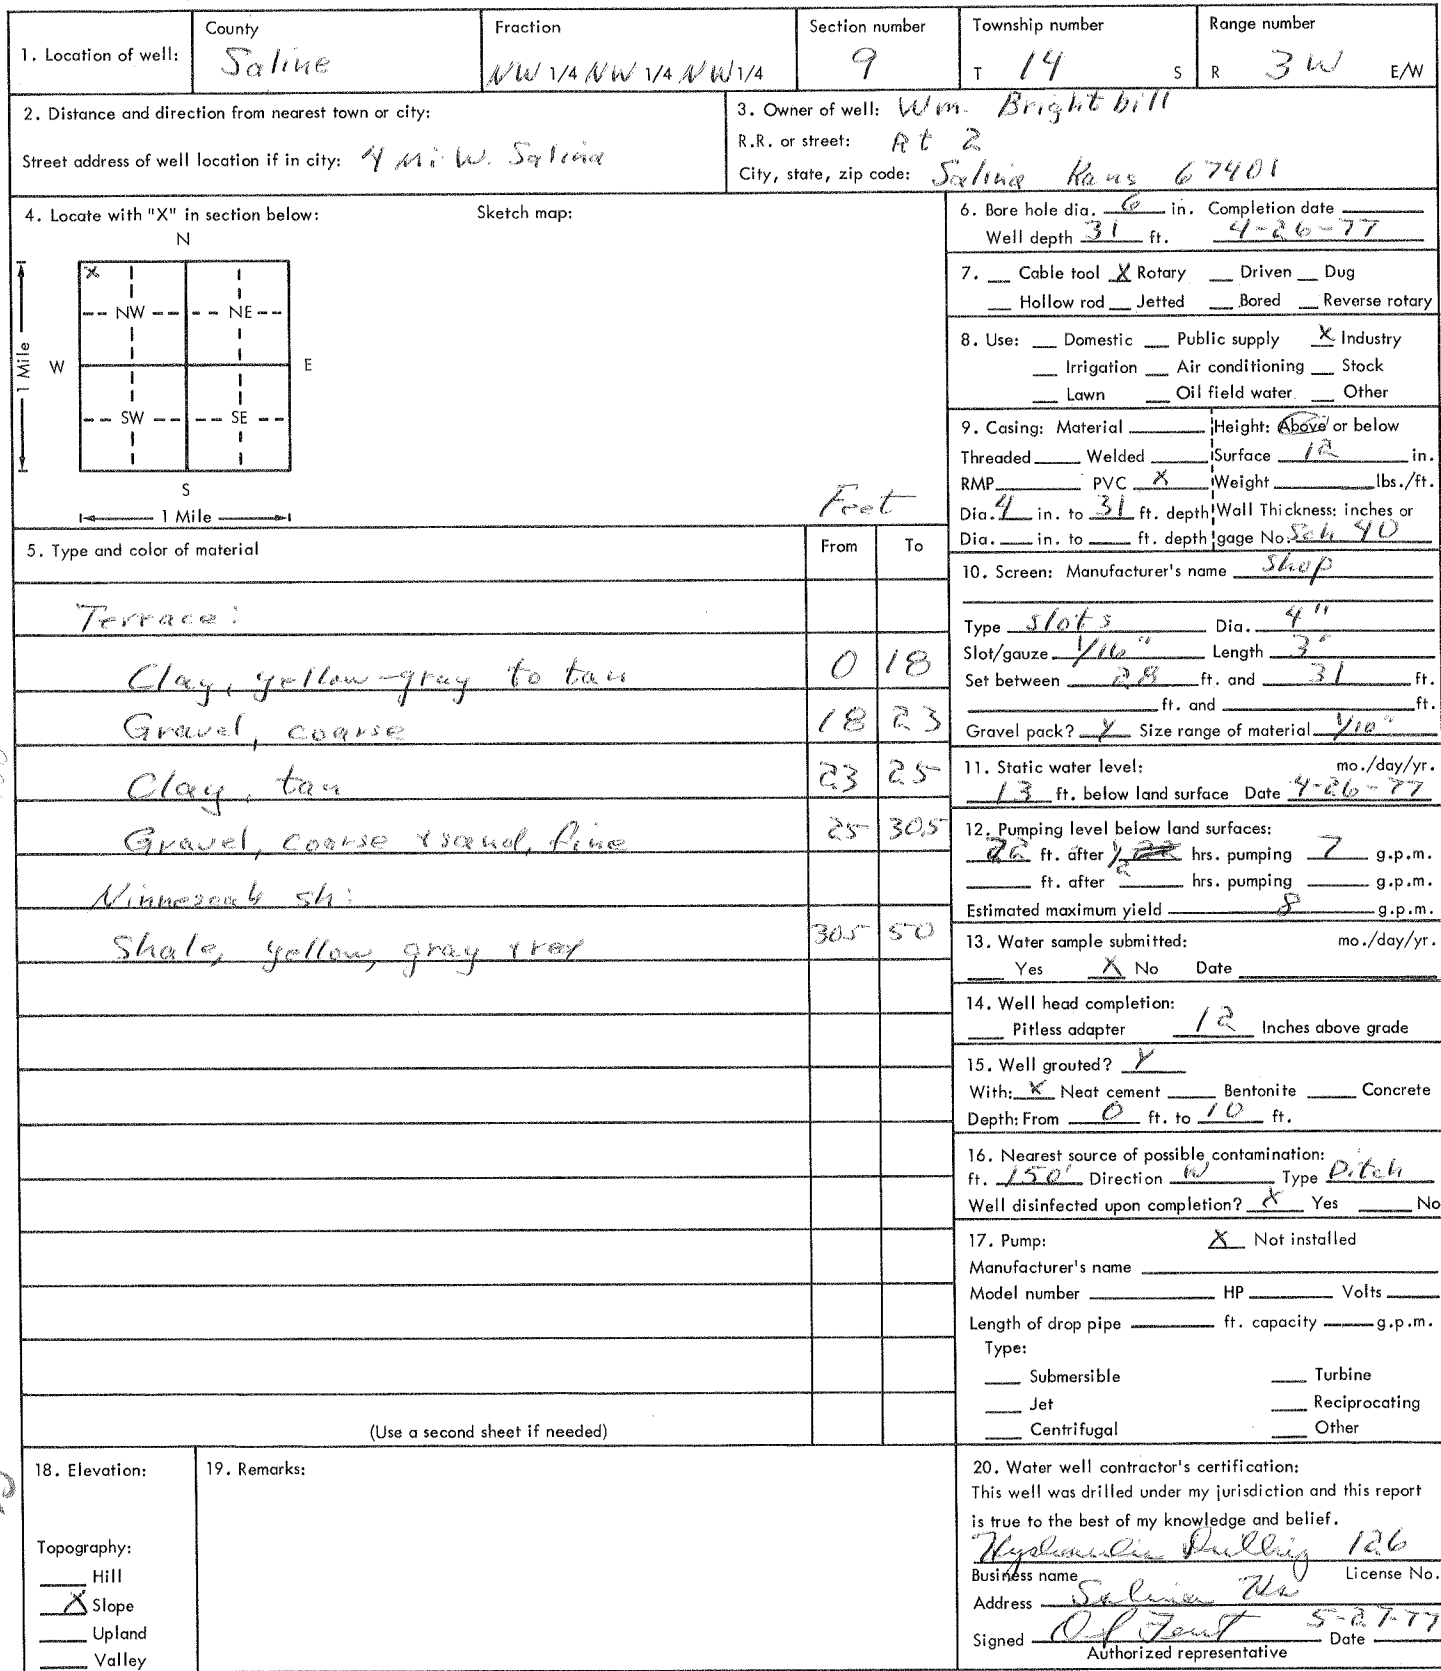 1. Location of well:
County
Saline
Fraction
NW 1/4 NW 1/4 NW 1/4
Section number
9
Township number
T 14 S
Range number
R 3 W E/W
2. Distance and direction from nearest town or city:
Street address of well location if in city: 4 Mi W. Salina
3. Owner of well: Wm. Brightbill
R.R. or street: Rt 2
City, state, zip code: Salina Kans 67401
4. Locate with "X" in section below:
Sketch map:
N
X
NW NE
1 Mile W E
SW SE
S
1 Mile
Feet
5. Type and color of material From To
Terrace:
Clay, yellow-gray to tan 0 18
Gravel, coarse 18 23
Clay, tan 23 25
Gravel, coarse & sand, fine 25 30.5
Ninnescah sh:
Shale, yellow, gray & red 30.5 50
(Use a second sheet if needed)
6. Bore hole dia. 6 in. Completion date
Well depth 31 ft. 4-26-77
7. Cable tool X Rotary Driven Dug
Hollow rod Jetted Bored Reverse rotary
8. Use: Domestic Public supply X Industry
Irrigation Air conditioning Stock
Lawn Oil field water Other
9. Casing: Material Height: Above or below
Threaded Welded Surface 12 in.
RMP PVC X Weight lbs./ft.
Dia. 4 in. to 31 ft. depth Wall Thickness: inches or
Dia. in. to ft. depth gage No. Sch 40
10. Screen: Manufacturer's name Shop
Type slots Dia. 4"
Slot/gauze 1/16" Length 3'
Set between 28 ft. and 31 ft.
ft. and ft.
Gravel pack? Y Size range of material 1/10"
11. Static water level: mo./day/yr.
13 ft. below land surface Date 4-26-77
12. Pumping level below land surfaces:
22 ft. after 1/2 hrs. pumping 7 g.p.m.
ft. after hrs. pumping g.p.m.
Estimated maximum yield 8 g.p.m.
13. Water sample submitted: mo./day/yr.
Yes X No Date
14. Well head completion:
Pitless adapter 12 Inches above grade
15. Well grouted? Y
With: X Neat cement Bentonite Concrete
Depth: From 0 ft. to 10 ft.
16. Nearest source of possible contamination:
ft. 150' Direction W Type Ditch
Well disinfected upon completion? X Yes No
17. Pump: X Not installed
Manufacturer's name
Model number HP Volts
Length of drop pipe ft. capacity g.p.m.
Type:
Submersible Turbine
Jet Reciprocating
Centrifugal Other
18. Elevation:
Topography:
Hill
X Slope
Upland
Valley
19. Remarks:
20. Water well contractor's certification:
This well was drilled under my jurisdiction and this report
is true to the best of my knowledge and belief.
Hydraulic Drilling 126
Business name License No.
Address Salina Ks
Signed Fent 5-27-77 Date
Authorized representative